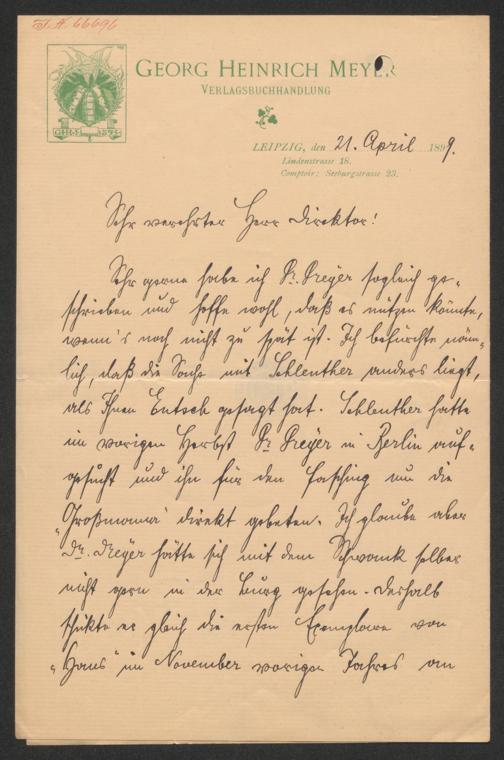 I.N. 66696
GEORG HEINRICH MEYER
VERLAGSBUCHHANDLUNG
G.H.M. 1895
LEIPZIG, den 21. April 1899.
Lindenstrasse 18.
Comptoir: Seeburgstrasse 23.
Sehr verehrter Herr Direktor!
Sehr gerne habe ich Dr. Dreyer sogleich ge-
schrieben und hoffe wohl, daß es nützen könnte,
wenn's noch nicht zu spät ist. Ich befürchte näm-
lich, daß die Sache mit Schlenther anders liegt,
als Ihnen Entsch gesagt hat. Schlenther hatte
im vorigen Herbst Dr. Dreyer in Berlin auf-
gesucht und ihn für den Fasching um die
„Großmama" direkt gebeten. Ich glaube aber
Dr. Dreyer hätte sich mit dem Schwank selber
nicht gern in der Burg gesehen. Deshalb
schickte er gleich die ersten Exemplare von
„Hans" im November vorigen Jahres an